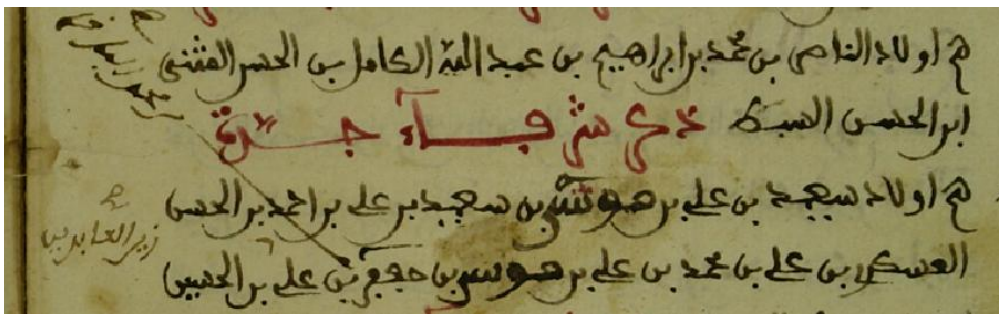 هم اولاد الناصر بن محمد بن ابراهيم بن عبد الله الكامل بن الحسن المثنى
ابن الحسن السبط ذكر شرفاء جزة
هم اولاد سعيد بن علي بن موسى بن سعيد بن علي بن احمد بن الحسن
العسكر بن علي بن محمد بن علي بن موسى بن جعفر بن علي بن الحسين
زين العابدين